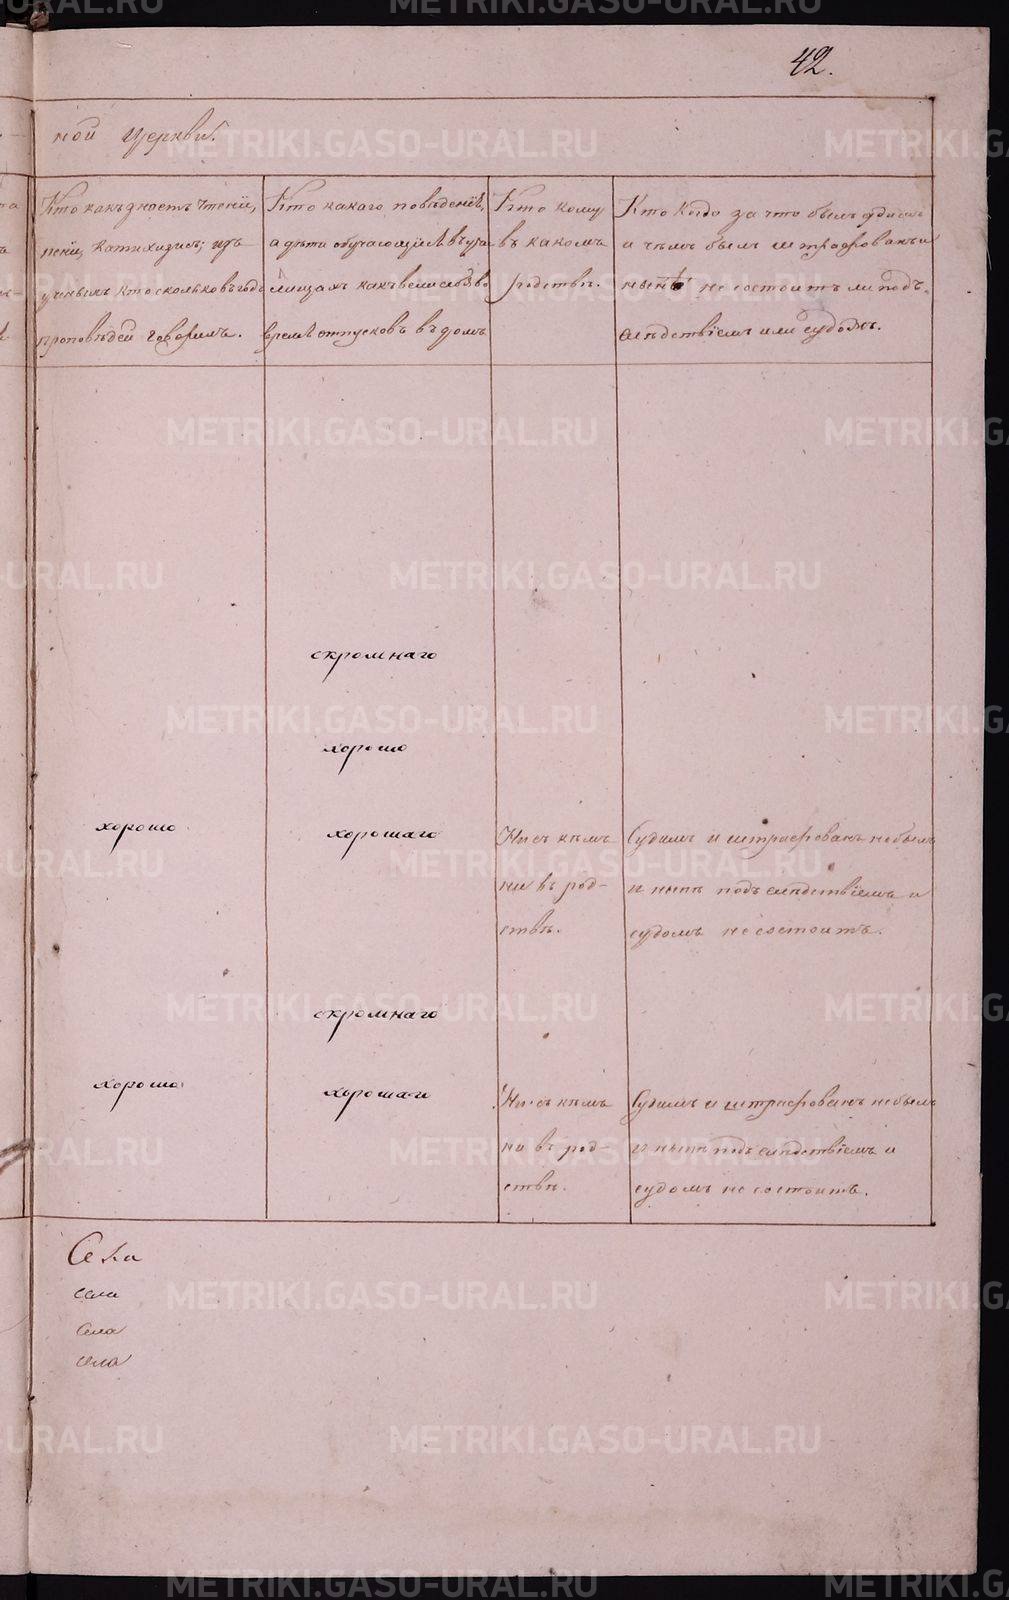 42.
ной Церкви.
Кто какъ знаетъ чтеніе,
пеніе, катихизисъ; изъ
ученыхъ кто сколько въ годъ
проповѣдей говоритъ.
Кто какаго поведенія,
а дѣти обучающіяся въ учи
лищахъ какъ вели себя во
время отпусковъ въ домъ
Кто кому
въ какомъ
родствѣ.
Кто когда за что былъ судимъ
и чѣмъ былъ штрафованъ и
нынѣ не состоитъ ли подъ
слѣдствіемъ или судомъ.
скромнаго
хорошо
хорошо
хорошаго
Ни съ кѣмъ
ни въ род-
ствѣ.
Судимъ и штрафованъ не былъ
и нынѣ подъ слѣдствіемъ и
судомъ не состоитъ.
скромнаго
хорошо
хорошаго
Ни съ кѣмъ
ни въ род-
ствѣ.
Судимъ и штрафованъ не былъ
и нынѣ подъ слѣдствіемъ и
судомъ не состоитъ.
села
села
села
METRIKI.GASO-URAL.RU